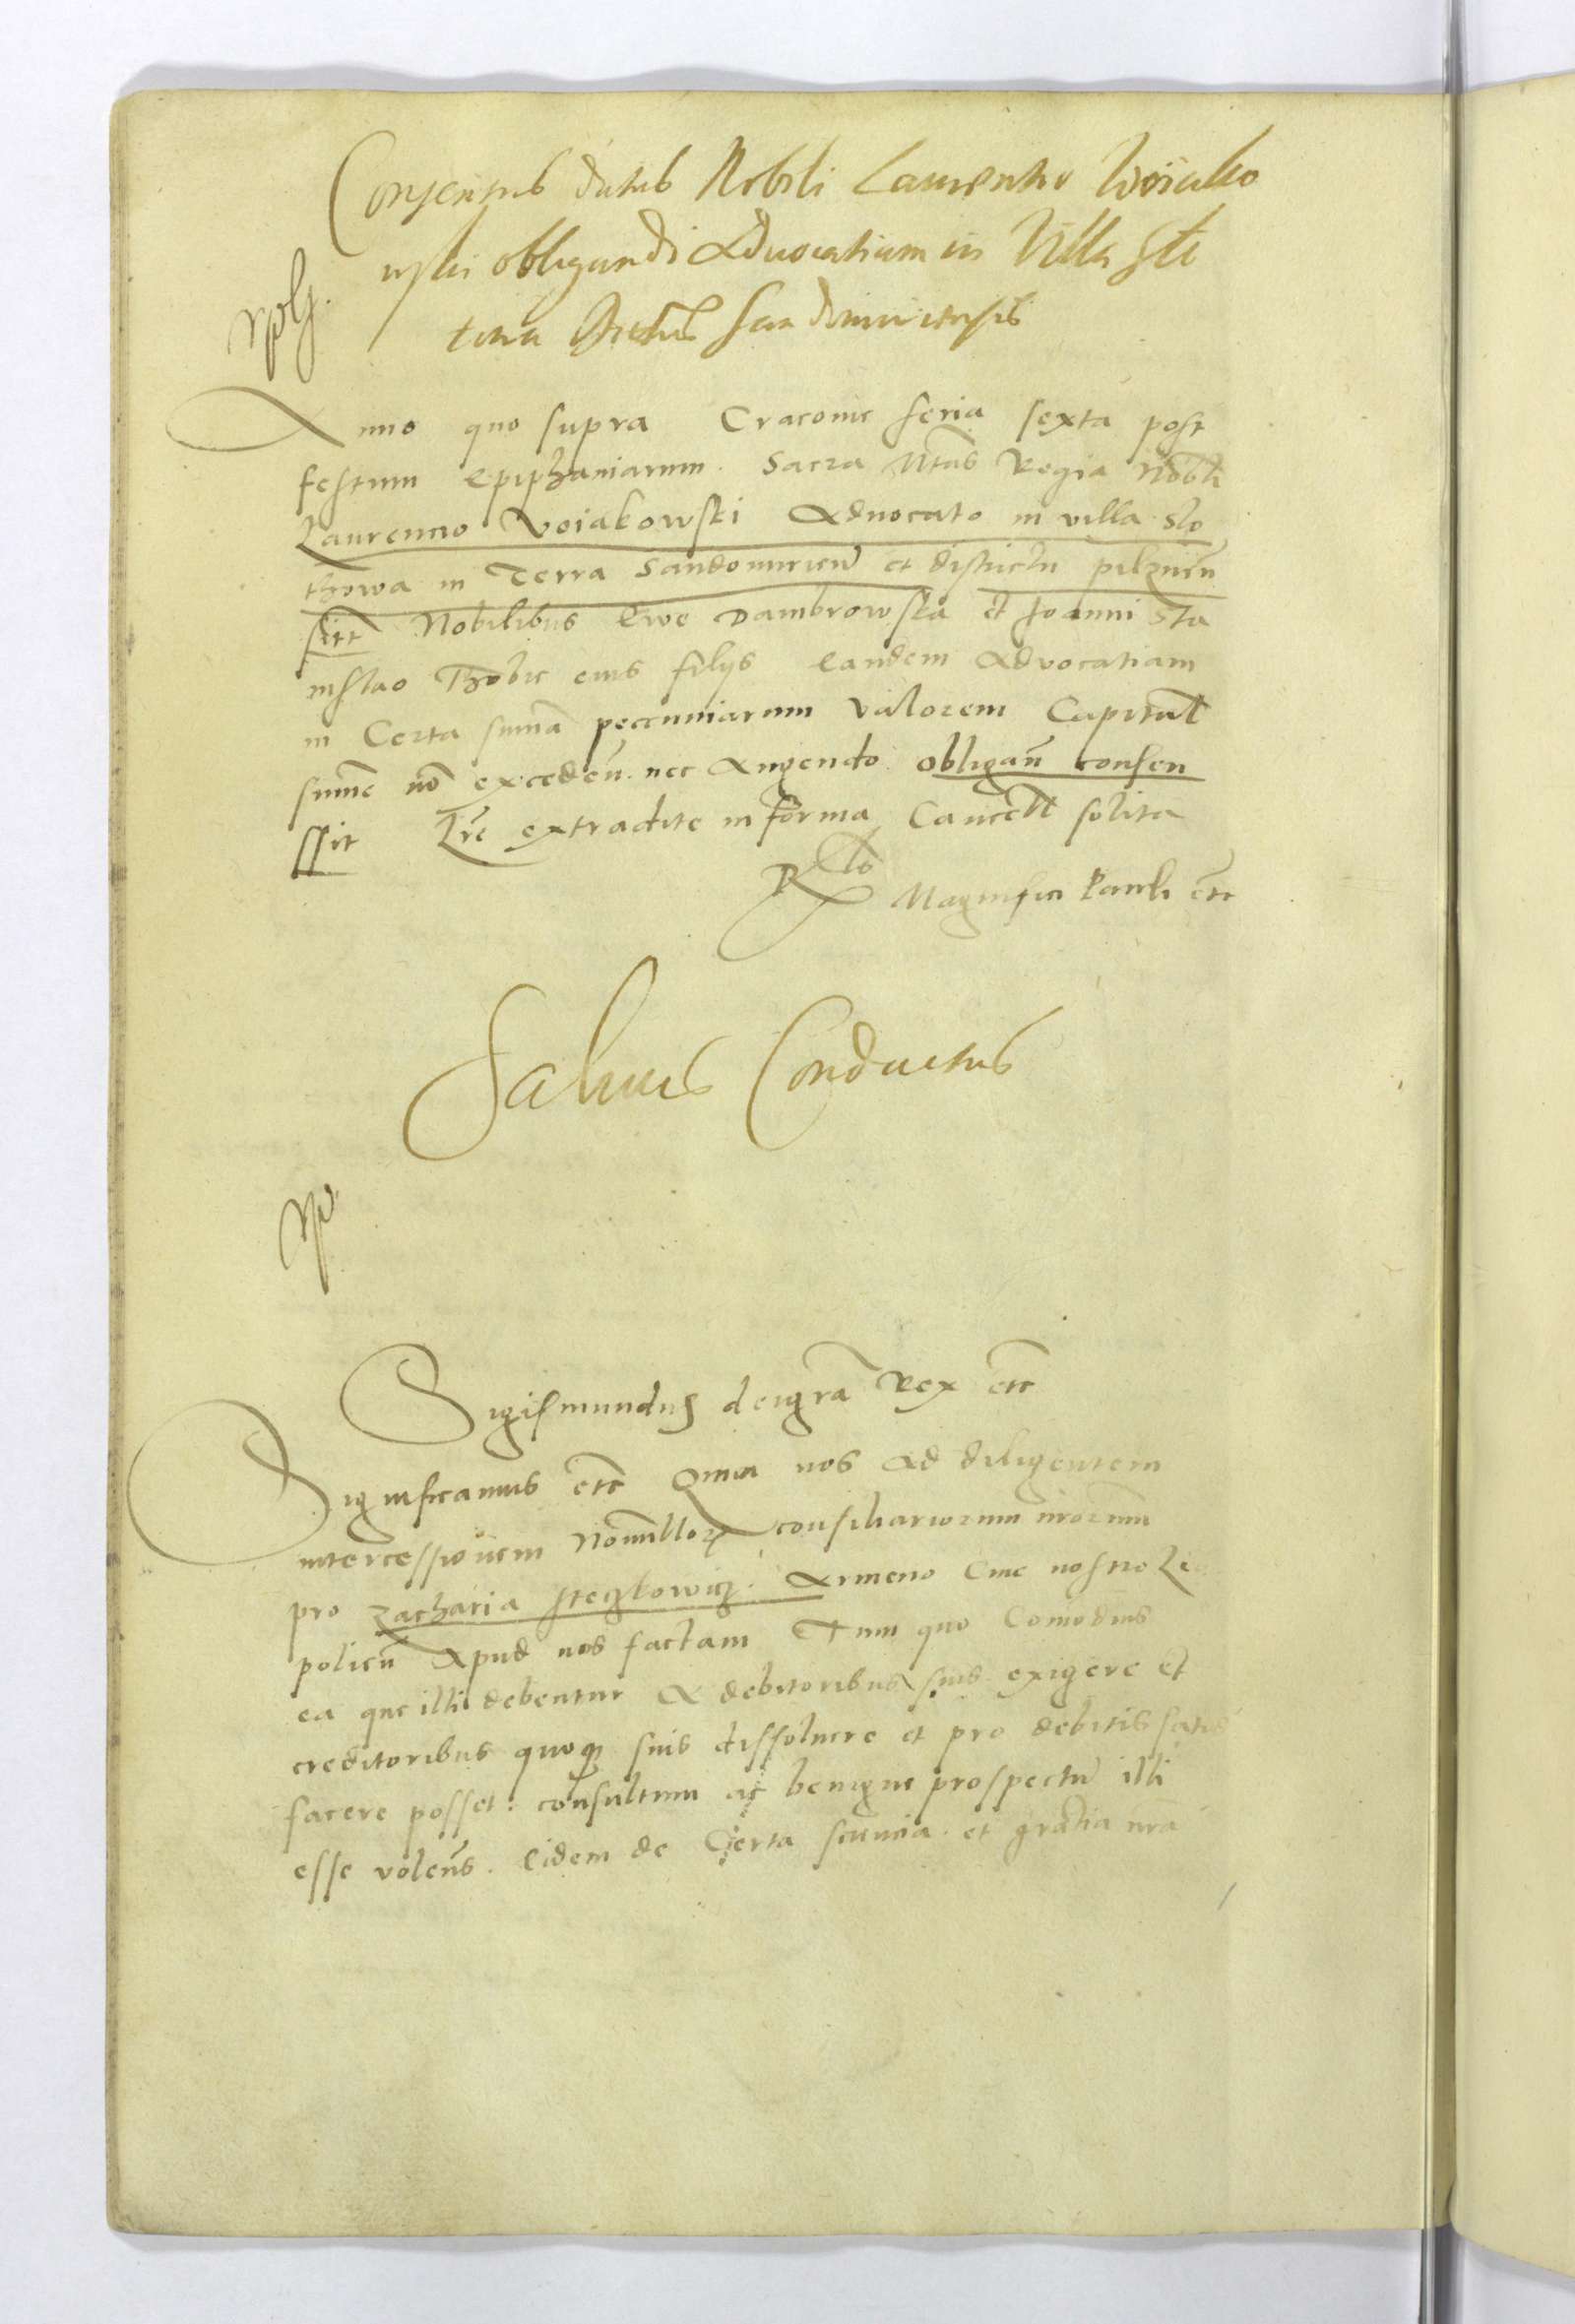 Consensus datus Nobili Laurentio Woiako
wski obligandi Advocatiam in Villa Sto
tova Sandomiriensis
Anno quo supra Cracovie feria sexta post
festum Epiphaniarum. Sacra Mtas Regia Nobli
Laurencio Voiakowski Advocato in villa Slo
thowa in Terra Sandomirien et districtu pilznen
sitt Nobilibus Ewe Dambrowska et Joanni Sta
nislao Thobie eius filys Eandem Advocatiam
in Certa suma peccuniarum valorem Capitał
sume no exceden. nec Augendo obligan consen
ssit Lre extradite in forma Cancell solita
Rlo Magnifici Pauli etc
Salvus Conductus
Sigismundus dei gra Rex etc
Significamus etc Quia nos Ad diligentem
intercessionem Nonullor consiliariorum nrorum
pro Zacharia Steczkowicz. Armeno Cive nostro Leo
policn Apud nos factam Tum quo Comodius
ea que illi debentur A debitoribus suis exigere et
creditoribus quoq suis dissolvere et pro debitis satis
facere posset: consultum ac benigne prospectu illi
esse volens. Eidem de Certa sciencia. et gratia nra